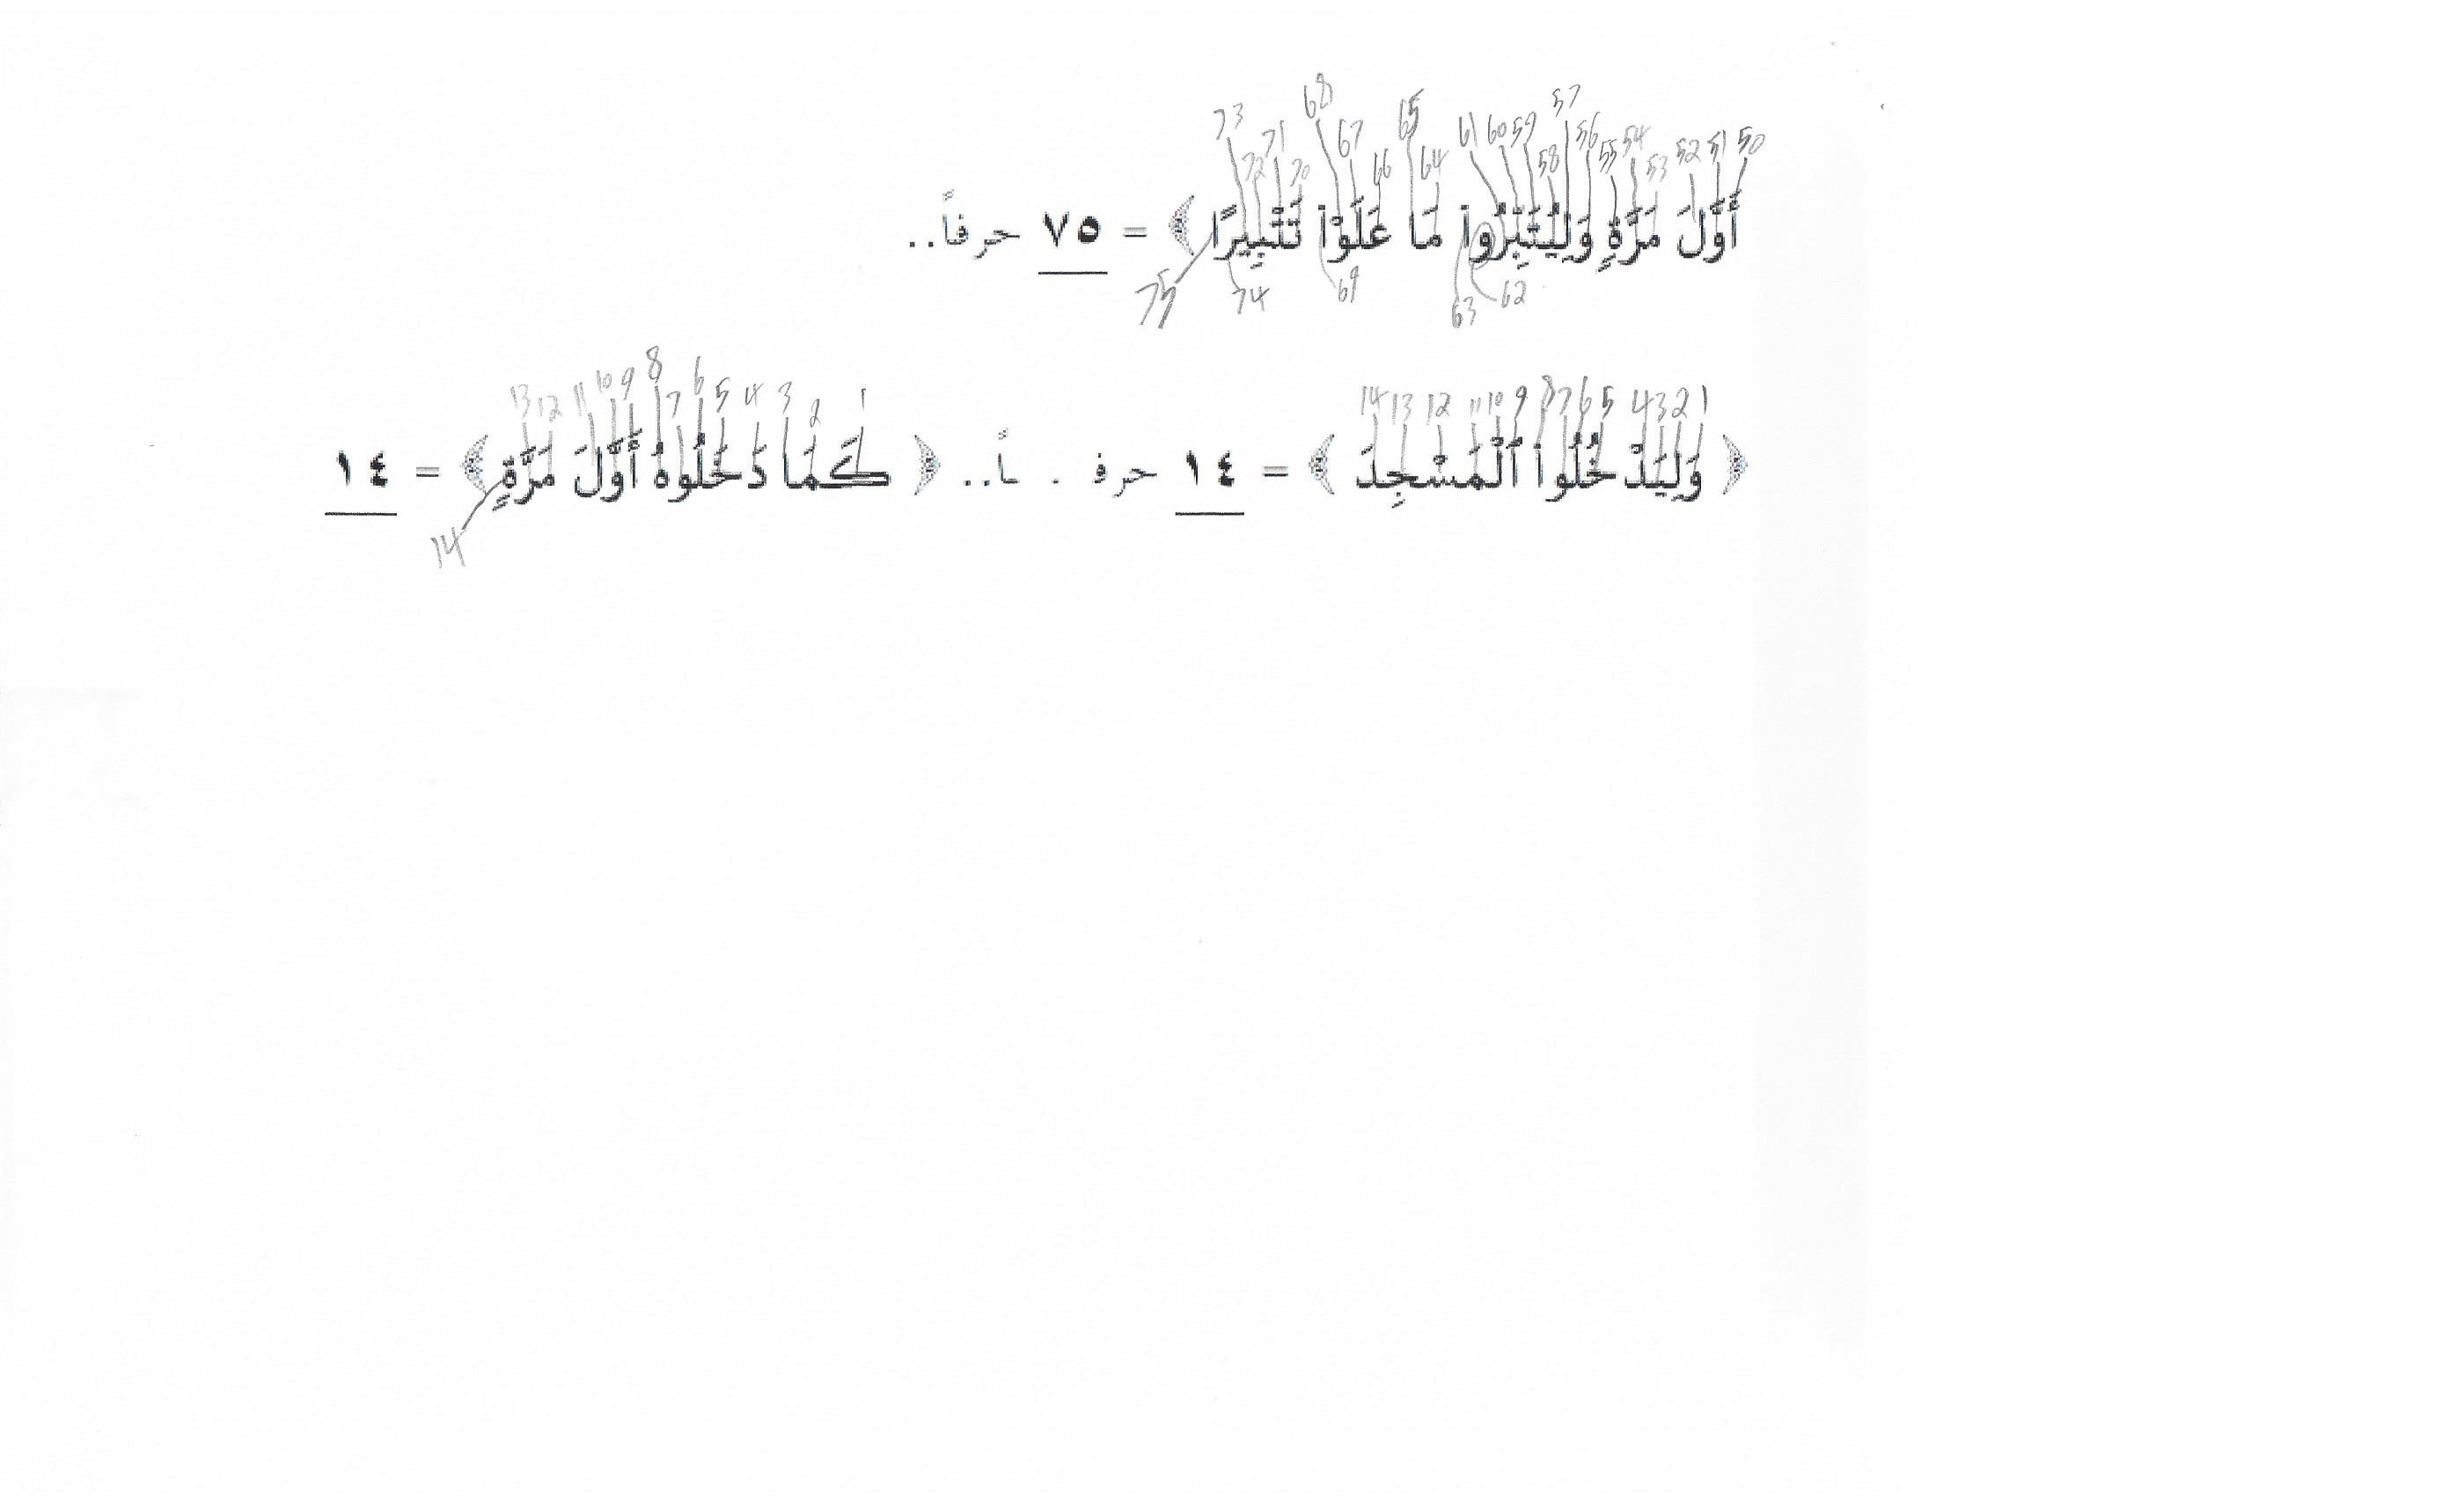 73 68 67 65 61 60 59 57 56 54 52 51 50
72 71 70 66 64 58 55 53
أَوَّلَ مَرَّةٍ وَلِيُتَبِّرُوا۟ مَا عَلَوْا۟ تَتْبِيرًا ﴾ = ٧٥ حرفاً..
75 74 69 63 62
13 12 11 10 9 8 7 6 5 4 3 2 1 14 13 12 11 10 9 8 7 6 5 4 3 2 1
﴿ وَلِيَدْخُلُوا۟ ٱلْمَسْجِدَ ﴾ = ١٤ حرف . ـاً.. ﴿ كَمَا دَخَلُوهُ أَوَّلَ مَرَّةٍ ﴾ = ١٤
14